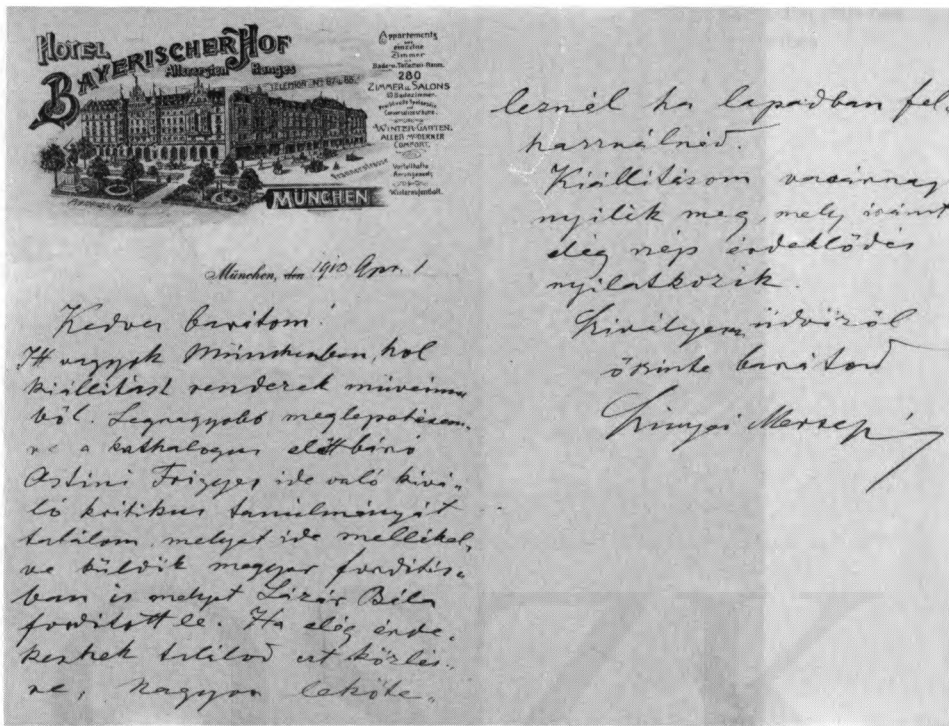 HOTEL
BAYERISCHER HOF
Allerersten Ranges
Appartements
und
einzelne
Zimmer
280
ZIMMER u. SALONS
WINTER-GARTEN,
ALLER MODERNER
COMFORT.
Prannerstrasse
MÜNCHEN
München, den 1910 Apr. 1
Kedves barátom!
Itt vagyok Münchenben, hol
kiállítást rendezek műveim-
ből. Legnagyobb meglepetésem-
re a kathalogus előtt báró
Ostini Frigyes ide való kivá-
ló kritikus tanulmányát
találom, melyet ide mellékel-
ve küldök magyar fordítás-
ban is melyet Lázár Béla
fordított le. Ha elég érde-
kesnek találod ezt közlés-
re, nagyon leköte-
leznél ha lapodban fel
használnéd.
Kiállításom vasárnap
nyílik meg, mely iránt
elég szép érdeklődés
nyilatkozik.
Szívélyesen üdvözöl
őszinte barátod
Szinyei Merse Pál